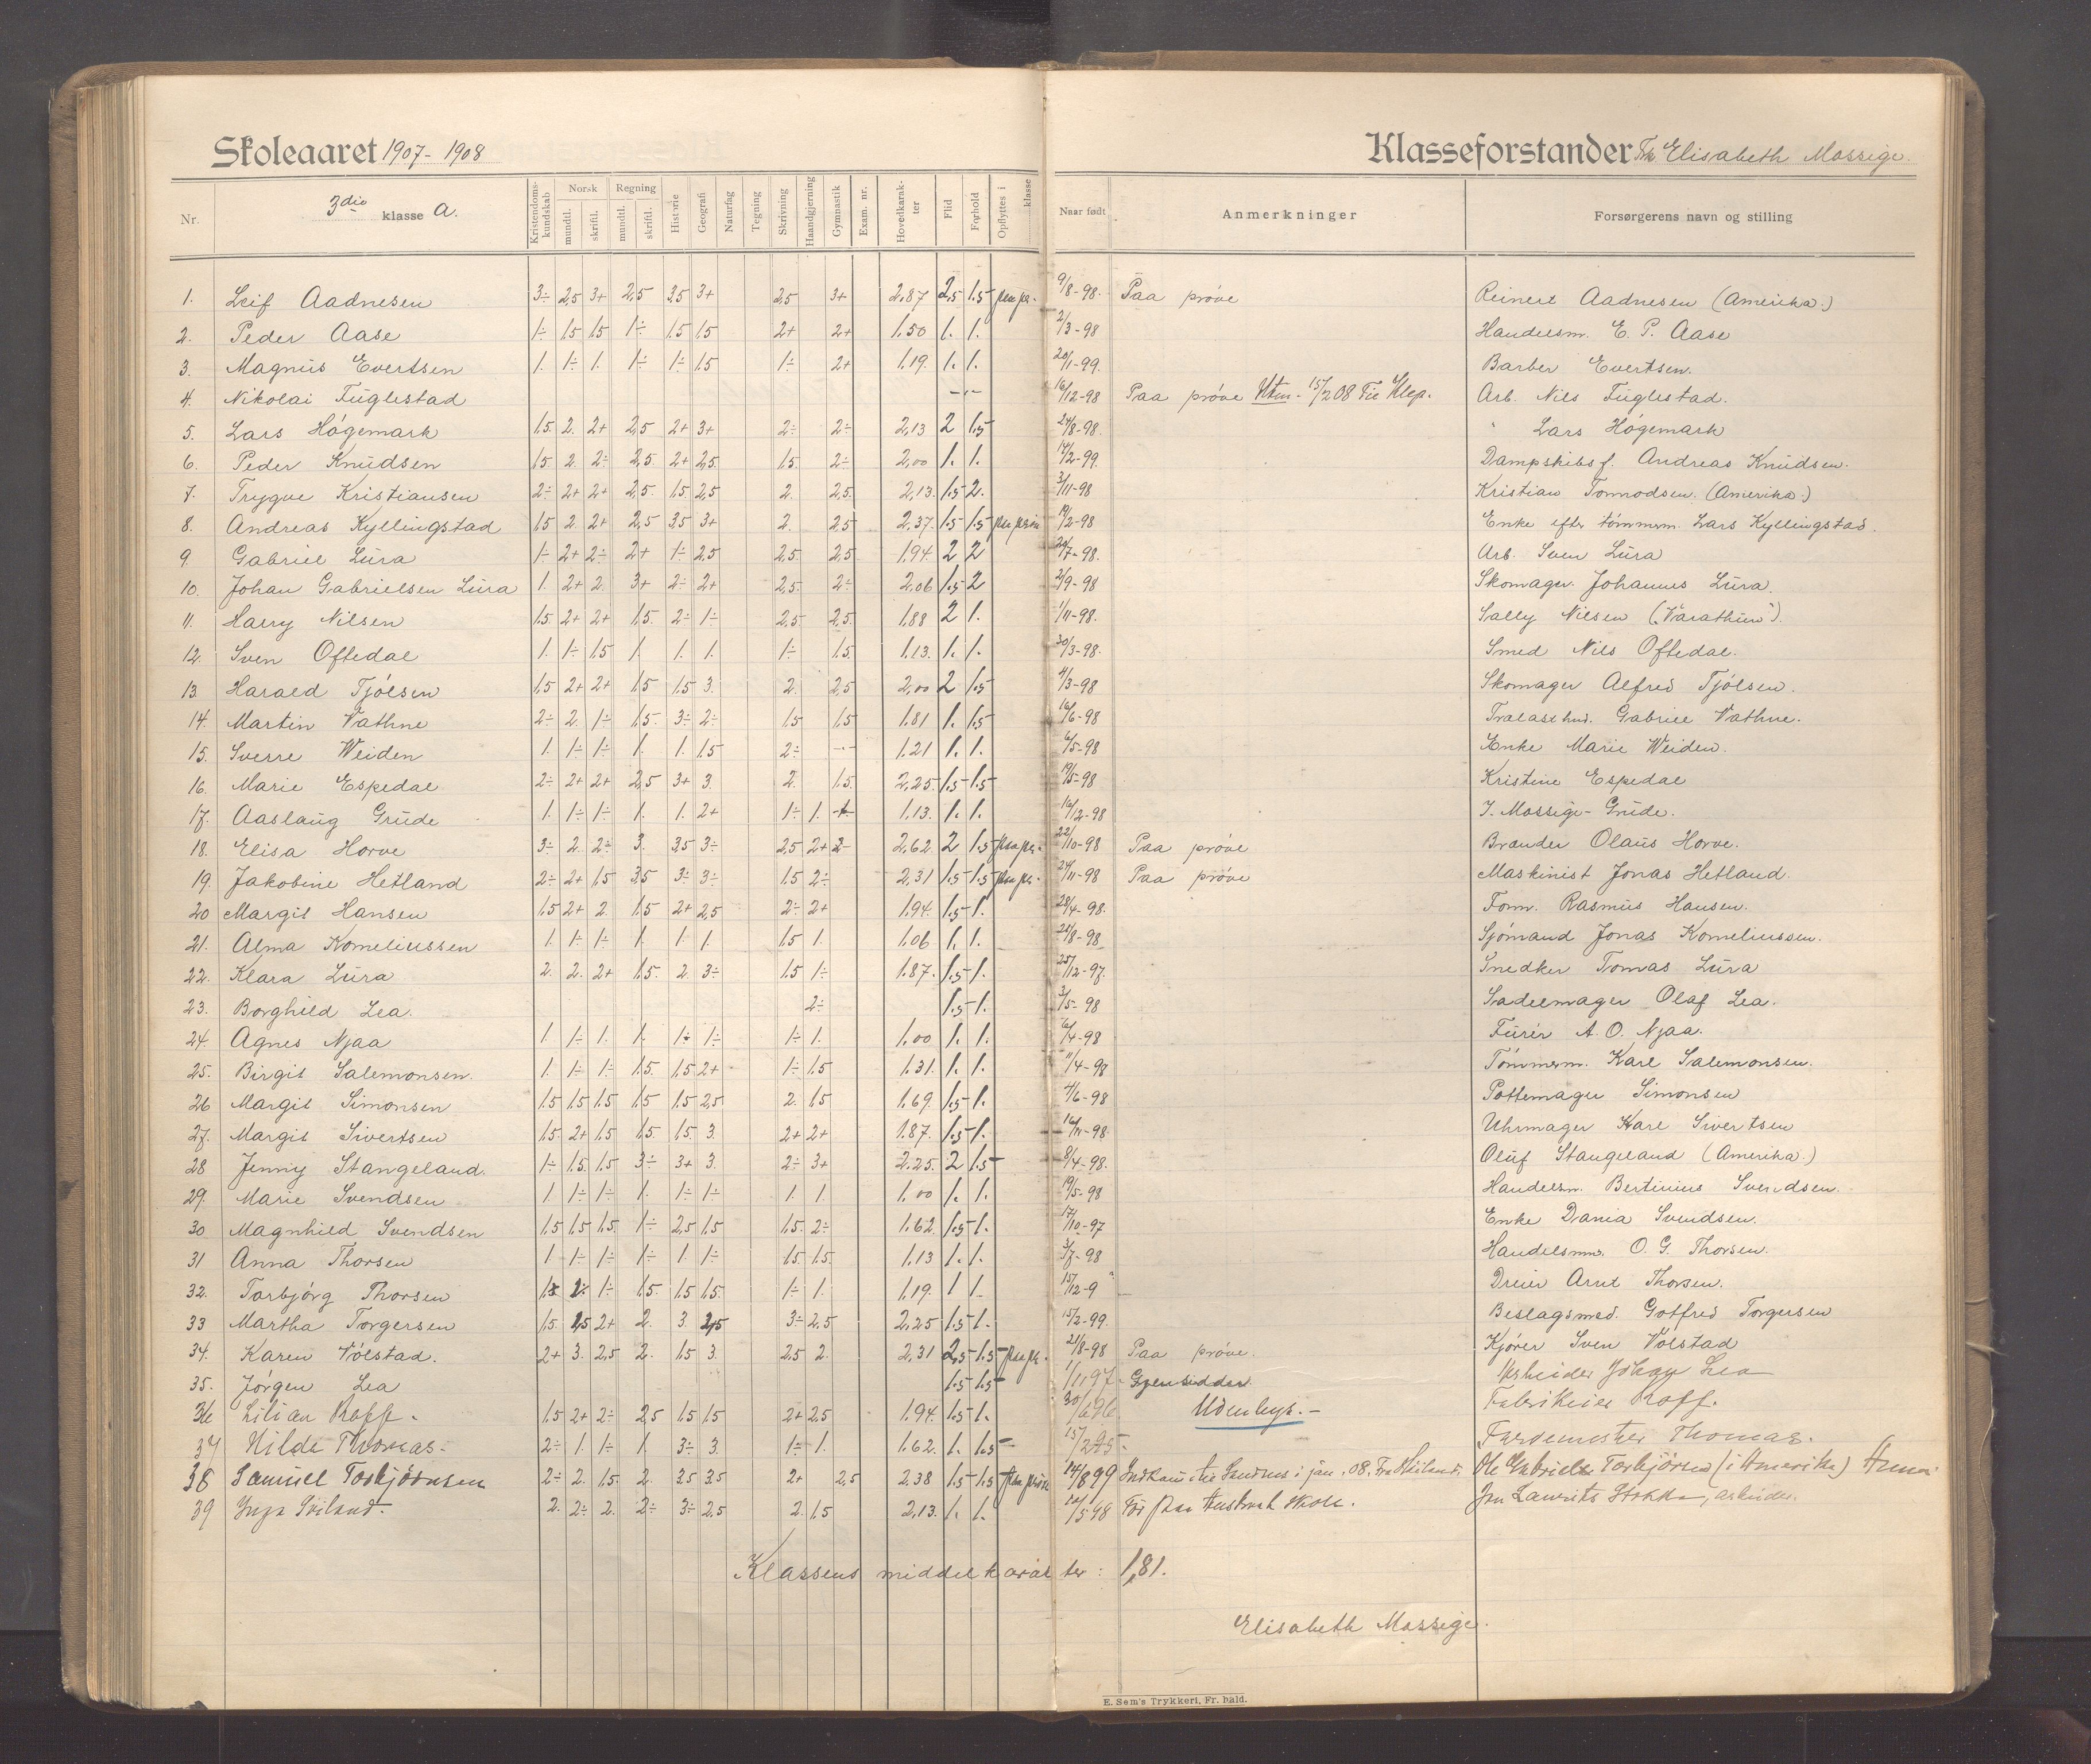 Skoleaaret 1907-1908
Klasseforstander Frk Elisabeth Mossige.
Nr.
3die klasse A.
Kristendomskundskab
Norsk mundtl. skriftl.
Regning mundtl. skriftl.
Historie
Geografi
Naturfag
Tegning
Skrivning
Haandgjerning
Gymnastik
Exam. nr.
Hovedkarakter
Flid
Forhold
Opflyttes i klasse
Naar født
Anmerkninger
Forsørgerens navn og stilling
1. Leif Aadnesen 3÷ 2,5 3+ 2,5 3,5 3+ 2,5 3+ 2,87 2,5 1.5 paa pr. 9/8-98. Paa prøve Reinert Aadnesen (Amerika.)
2. Peder Aase 1÷ 1,5 1,5 1÷ 1,5 1,5 2+ 2+ 1.50 1. 1. 2/3-98 Handelsm. E. P. Aase
3. Magnus Evertsen 1. 1÷ 1. 1÷ 1÷ 1,5 1÷ 2+ 1.19. 1. 1. 20/1-99. Barber Evertsen.
4. Nikolai Fuglestad 16/12-98 Paa prøve Utm. 15/2 08 Til Klep. Arb. Nils Fuglestad.
5. Lars Høgemark 1,5. 2. 2+ 2,5 2+ 3+ 2÷ 2÷ 2,13 2 1.5 24/8-98. " Lars Høgemark
6. Peder Knudsen 1,5 2. 2÷ 2,5. 2+ 2,5. 1,5. 2÷ 2,00 1. 1. 14/2-99. Dampskibsf. Andreas Knudsen.
7. Trygve Kristiansen 2÷ 2+ 2+ 2,5. 1,5. 2,5 2. 2,5. 2,13. 1.5 2. 3/11-98 Kristian Tonnodsen. (Amerika.)
8. Andreas Kyllingstad 1,5 2. 2+ 2,5 3,5 3+ 2. 2,5 2,37. 1.5 1.5 paa prøve 19/2-98 Enke efter tømmerm. Lars Kyllingstad.
9. Gabriel Lura 1÷ 2+ 2÷ 2+ 1÷ 2,5 2,5 2,5 1.94. 2 2 20/7-98. Arb. Sven Lura
10. Johan Gabrielsen Lura 1. 2+ 2. 3+ 2÷ 2+ 2,5. 2÷ 2,06 1.5 2 2/9-98 Skomager. Johannes Lura.
11. Harry Nilsen 1,5 2+ 2+ 1,5. 2÷ 1÷ 2,5. 2,5. 1.88 2 1. 1/11-98. Sally Nilsen ("Varathun").
12. Sven Oftedal 1. 1÷ 1,5 1. 1. 1. 1÷ 1,5. 1.13. 1. 1. 30/3-98. Smed Nils Oftedal.
13. Harald Tjølsen 1,5 2+ 2+ 1,5 1,5 3. 2. 2,5 2,00 2 1.5 4/3-98 Skomager Alfred Tjølsen.
14. Martin Vathne 2÷ 2. 1÷ 1,5. 3÷ 2÷ 1,5 1,5 1.81 1. 1.5 16/6-98 Gabriel Vathne.
15. Sverre Weiden 1. 1÷ 1÷ 1. 1. 1,5 2÷ 1.21 1. 1. 6/5-98 Enke Marie Weiden.
16. Marie Espedal 2÷ 2+ 2+ 2,5 3+ 3. 2. 1,5. 2,25. 1.5 1.5 19/5-98 Kristine Espedal
17. Aaslaug Grude 1. 1÷ 1÷ 1. 1. 2+ 1÷ 1. 1.13. 1. 1. 16/12-98 I. Mossige-Grude.
18. Elisa Horve 3÷ 2. 2÷ 3. 3,5 3÷ 2,5 2+ 2,62. 2 1.5 paa pr. 22/10-98 Paa prøve Brænder Olaus Horve.
19. Jakobine Hetland 2÷ 2+ 1,5 3,5 3÷ 3÷ 1,5 2÷ 2,31 1.5 1.5 paa pr. 24/11-98 Paa prøve Maskinist Jonas Hetland.
20 Margit Hansen 1,5 2+ 2. 1,5 2+ 2,5 2÷ 2+ 1.94. 1.5 1. 28/4-98. Form. Rasmus Hansen.
21. Alma Korneliussen 1. 1÷ 1÷ 1. 1. 1. 1,5 1. 1.06 1. 1. 28/8-98 Sjømand Jonas Korneliussen.
22. Klara Lura 2. 2. 2+ 1,5. 2. 3÷ 1,5 1÷ 1.87. 1.5 1. 25/12-97. Snedker Tomas Lura
23. Borghild Lea. 2÷ 1.5 1. 3/5-98 Sadelmager Olaf Lea.
24. Agnes Njaa 1. 1÷ 1. 1. 1÷ 1÷ 1÷ 1. 1.00 1. 1. 6/4-98 Furér A. O. Njaa.
25. Birgit Salemonsen. 1. 1÷ 1÷ 1,5. 1,5 2+ 1÷ 1,5 1.31. 1. 1. 11/4-98 Tømmerm. Karl Salemonsen.
26 Margit Simonsen 1,5 1,5 1,5 1,5 1,5 2,5 2. 1,5 1.69. 1.5 1. 4/6-98 Pottemager Simonsen
27. Margit Sivertsen 1,5. 2+ 1,5 1,5. 1,5. 3. 2+ 2+ 1.87. 1.5 1. 16/11-98. Uhrmager Karl Sivertsen
28 Jenny Stangeland. 1÷ 1,5. 1,5 3÷ 3+ 3. 2÷ 3+ 2,25. 2 1.5 8/4-98. Oluf Stangeland (Amerika.)
29. Marie Svendsen 1. 1÷ 1÷ 1. 1÷ 1÷ 1. 1. 1.00 1. 1. 19/5-98 Handelsm. Bertinius Svendsen.
30 Magnhild Svendsen 1,5 1,5 1,5. 1÷ 2,5 1,5 1,5. 2÷ 1.62. 1.5 1. 17/10-97 Enke Dania Svendsen.
31 Anna Thorsen 1 1÷ 1÷ 1÷ 1 1÷ 1,5. 1,5. 1.13 1. 1. 3/7-98 Handelsmn. O. G. Thorsen.
32. Torbjørg Thorsen 1÷ 1,5. 1,5 1,5. 1÷ 1. 1.19. 1 1. 15/12-9 Dreier Arnt Thorsen.
33 Martha Torgersen 1,5. 2,5 2+ 2. 3. 2,5 3÷ 2,5 2,25 1.5 1. 15/2-99. Beslagsmed. Gotfred Torgersen
34. Karen Vølstad. 2+ 3. 2,5 2. 1,5 3. 2,5 2. 2,31 2,5 1.5 paa pr. 21/8-98 Paa prøve. Kjører Sven Vølstad
35. Jørgen Lea 1.5 1.5 1/1 97. Gjensidder. Arbeider Johan Lea
36 Lilian Roff. 1,5 2+ 2÷ 2,5 1,5 1,5 2+ 2,5 1.94. 1.5 1. 30/6 96. Udenbys.- Roff.
37 Hilda Thomas. 2÷ 1. 1÷ 1. 3÷ 3. 1÷ 1. 1.62. 1. 1.5 15/2 95. Farvemester Thomas.
38 Samuel Torbjørnsen 2÷ 2. 1,5. 2. 3,5 3,5 2+ 2,5 2,38 1.5 1.5 paa prøve 14/8 99 Indkom til Sandnes i jan. 08. Fra Høiland. Ole Gabriel Torbjørnsen (i Amerika)
39 Inga Sviland. 2. 2÷ 2. 2÷ 3÷ 2,5 2. 1,5 2,13. 1. 1. 12/5-98 Før paa Austraat skole. Jon Laurits Stokka, arbeider.
Klassens middelkarakter: 1,81.
Elisabeth Mossige.
E. Sem's Trykkeri, Fr. hald.